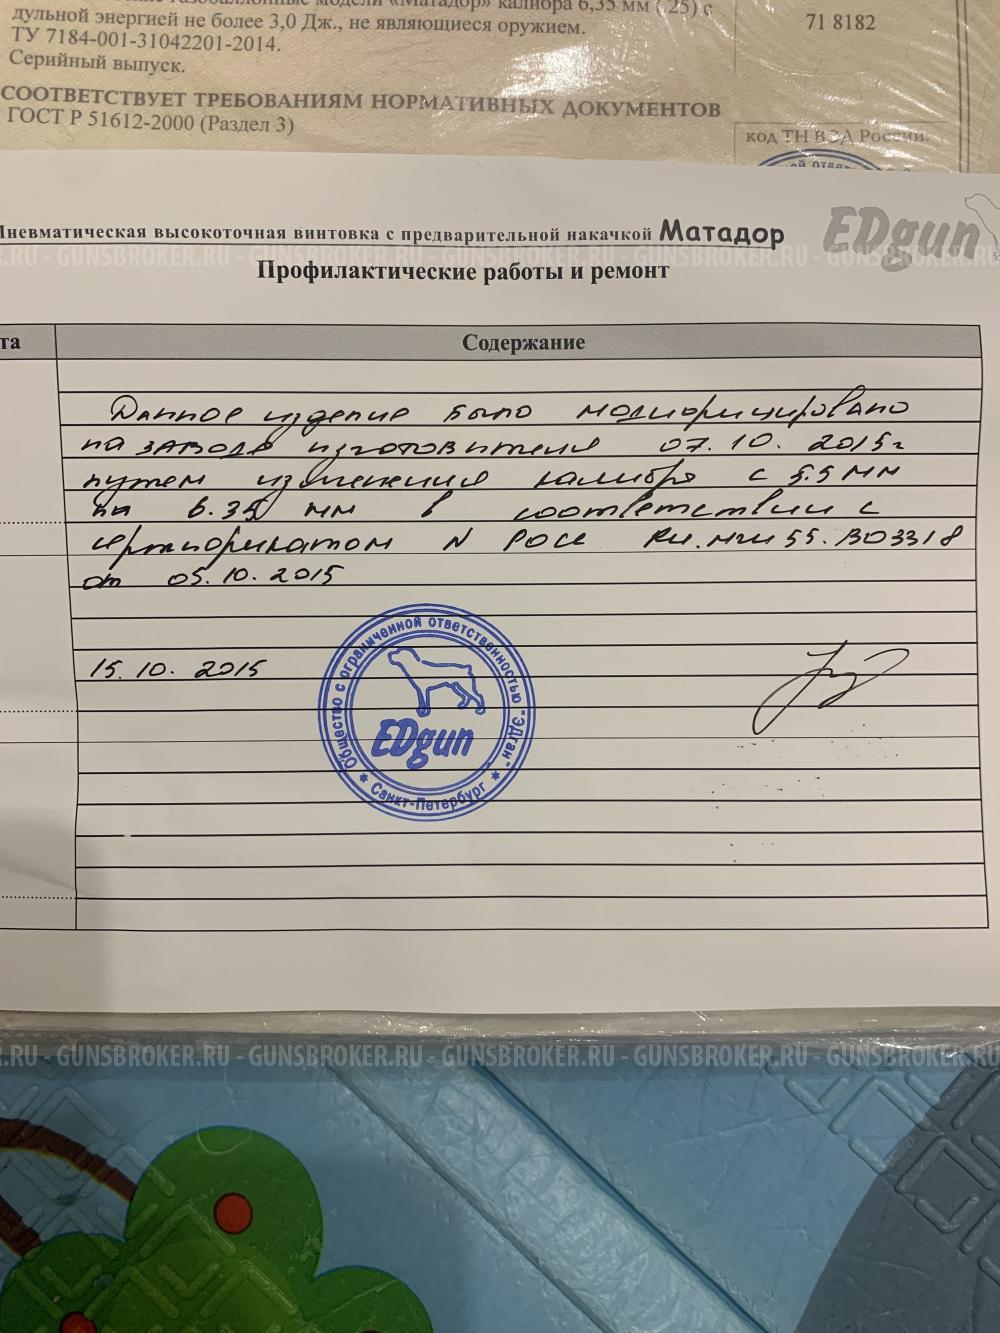 газобаллонные модели «Матадор» калибра 6,35 мм (.25) с
дульной энергией не более 3,0 Дж., не являющиеся оружием.
71 8182
ТУ 7184-001-31042201-2014.
Серийный выпуск.
СООТВЕТСТВУЕТ ТРЕБОВАНИЯМ НОРМАТИВНЫХ ДОКУМЕНТОВ
ГОСТ Р 51612-2000 (Раздел 3)
код ТН ВЭД России:
Пневматическая высокоточная винтовка с предварительной накачкой Матадор
EDgun
.RU - GUNSBROKER.RU - GUNSBROKER.RU - GUNSBROKER.RU - GUNSBROKER.RU - GUNSBROKER.RU
Профилактические работы и ремонт
та
Содержание
Данное изделие было модифицировано
на заводе изготовителя 07.10. 2015г
путем изменения калибра с 5.5 мм
на 6.35 мм в соответствии с
сертификатом N РОСС RU.МЛ 55.В03318
от 05.10.2015
15.10. 2015
Общество с ограниченной ответственностью "ЭДган"
EDgun
Санкт-Петербург
.RU - GUNSBROKER.RU - GUNSBROKER.RU - GUNSBROKER.RU - GUNSBROKER.RU - GUNSBROKER.RU